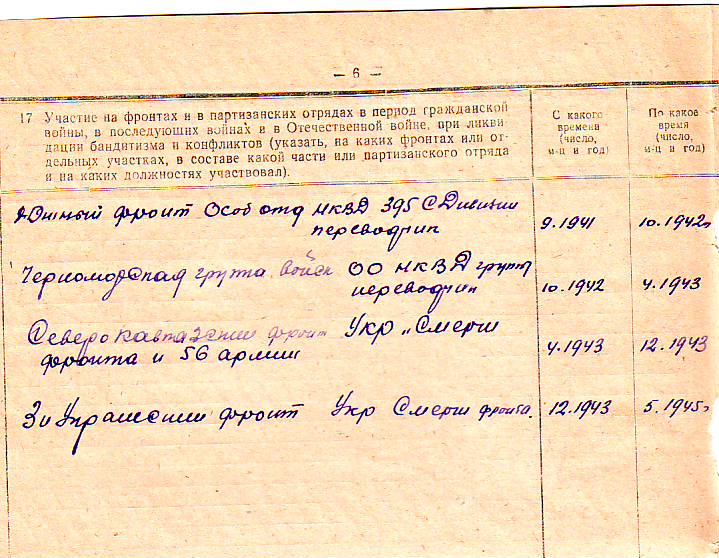 — 6 —
17 Участие на фронтах и в партизанских отрядах в период гражданской
войны, в последующих войнах и в Отечественной войне, при ликви-
дации бандитизма и конфликтов (указать, на каких фронтах или от-
дельных участках, в составе какой части или партизанского отряда
и на каких должностях участвовал).
С какого
времени
(число,
м-ц и год)
По какое
время
(число,
м-ц и год)
Южный фронт Особ отд НКВД 395 СДивизии
переводчик 9.1941 10.1942г
Черноморская группа войск ОО НКВД групп
переводчик 10.1942 4.1943
Северо Кавказский фронт Укр „Смерш
фронта и 56 армии 4.1943 12.1943
3й Украинский фронт Укр Смерш фронта. 12.1943 5.1945г